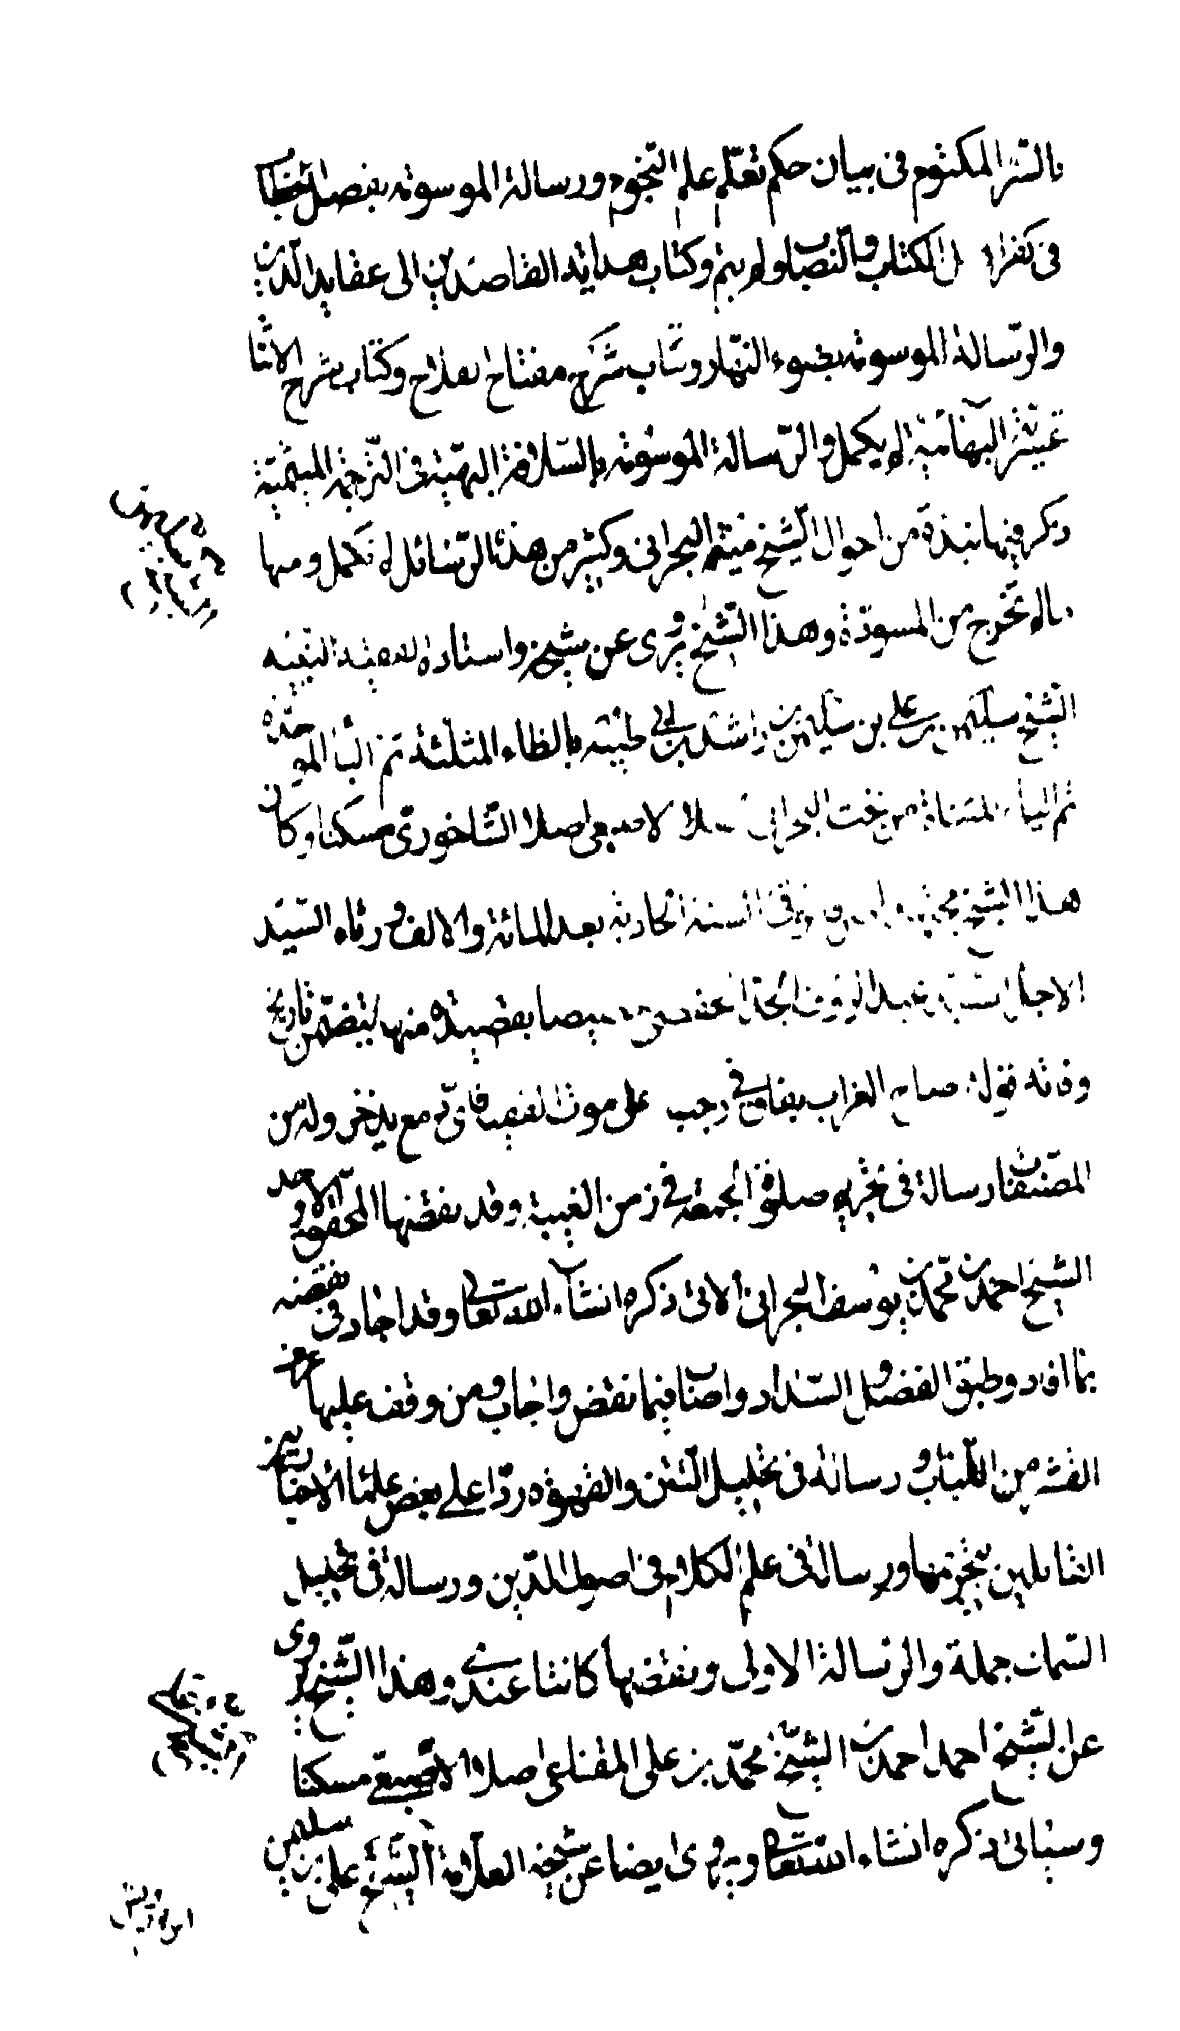 بالسر المكتوم فى بيان حكم تعلم علم النجوم ورسالة الموسومة بفصل الخطاب
فى كفر اهل الكتاب والنصاب ولم يتم وكتاب هداية القاصدين الى عقايد الدين
والرسالة الموسومة بضوء النهار وكتاب شرح مفتاح الفلاح وكتاب شرح الاثنا
عشر البهائية لم يكمل والرسالة الموسومة بالسلافة البهية فى الترجمة الميثمية
ذكر فيها نبذة من احوال الشيخ ميثم البحرانى وكثير من هذه الرسائل لم تكمل ومنها
ما لم تخرج من المسودة وهذا الشيخ يروى عن شيخه واستاده الفقيه النبيه
الشيخ سليمن بن على بن سليمن بن راشد بن ابى ظبية بالظاء المثلثة ثم الباء الموحدة
ثم الياء المثناة من تحت البحرانى الاصبعى اصلا الشاخورى مسكنا وكان
هذا الشيخ توفى السنة الحادية بعد المائة والالف ورثاه السيد
الاجل السيد عبد الروف الجد حفصى بقصيدة منها ليتضمن تاريخ
وفاته قوله صاح الغراب بغاق فى رجب على موت الفقيه فاى دمع يذخر وله من
المصنفات رسالة فى تحريم صلوة الجمعة فى زمن الغيبة وقد نقضها المحقق الاوحد
الشيخ احمد بن محمد بن يوسف البحرانى الاتى ذكره انشاء الله تعالى وقد اجاد فى نقضه
بما افاد وطبق الفضل والسداد واصاب فيما نقض واجاب ومن وقف عليها عرف
القشر من اللباب ورسالة فى تحليل التتن والقهوة ردا على بعض علماء الاخباريين
القائلين بتحريمها ورسالة فى علم الكلام فى اصول الدين ورسالة فى تحليل
السمك جملة والرسالة الاولى ونقضها كانتا عندى وهذا الشيخ يروى
عن الشيخ احمد احمد بن الشيخ محمد بن على المقشاعى اصلا الاصبعى مسكنا
وسياتى ذكره انشاء الله تعالى ويروى ايضا عن شيخه العلامة الشيخ على بن سليمن